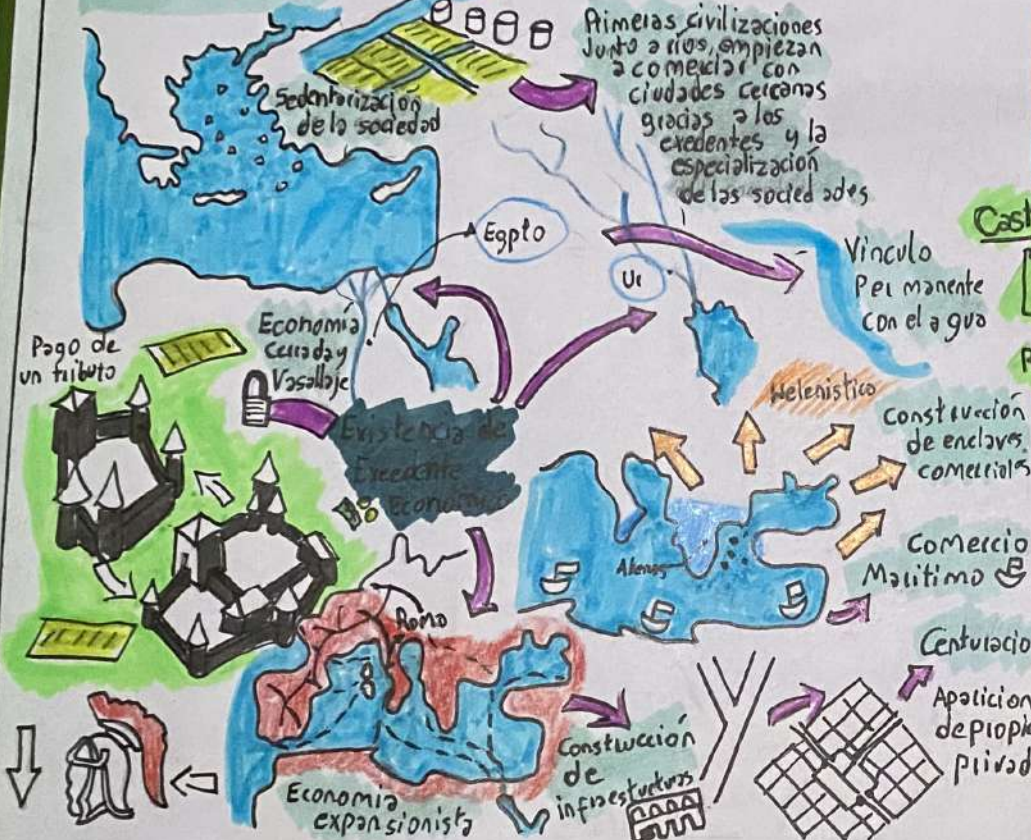 Sedentarización
de la sociedad
Primeras civilizaciones
Junto a ríos, empiezan
a comerciar con
ciudades cercanas
gracias a los
exedentes y la
especialización
de las sociedades
Egpto
Ur
Vinculo
Permanente
con el agua
Cast
Economía
Cerrada y
Vasallaje
Pago de
un tributo
Existencia de
Excedente
Económico
Helenistico
Construcción
de enclaves
comerciales
Atenas
Comercio
Maritimo
Roma
Centuriacio
Aparicion
de propie
privad
Construcción
de
infraestructuras
Economia
expansionista